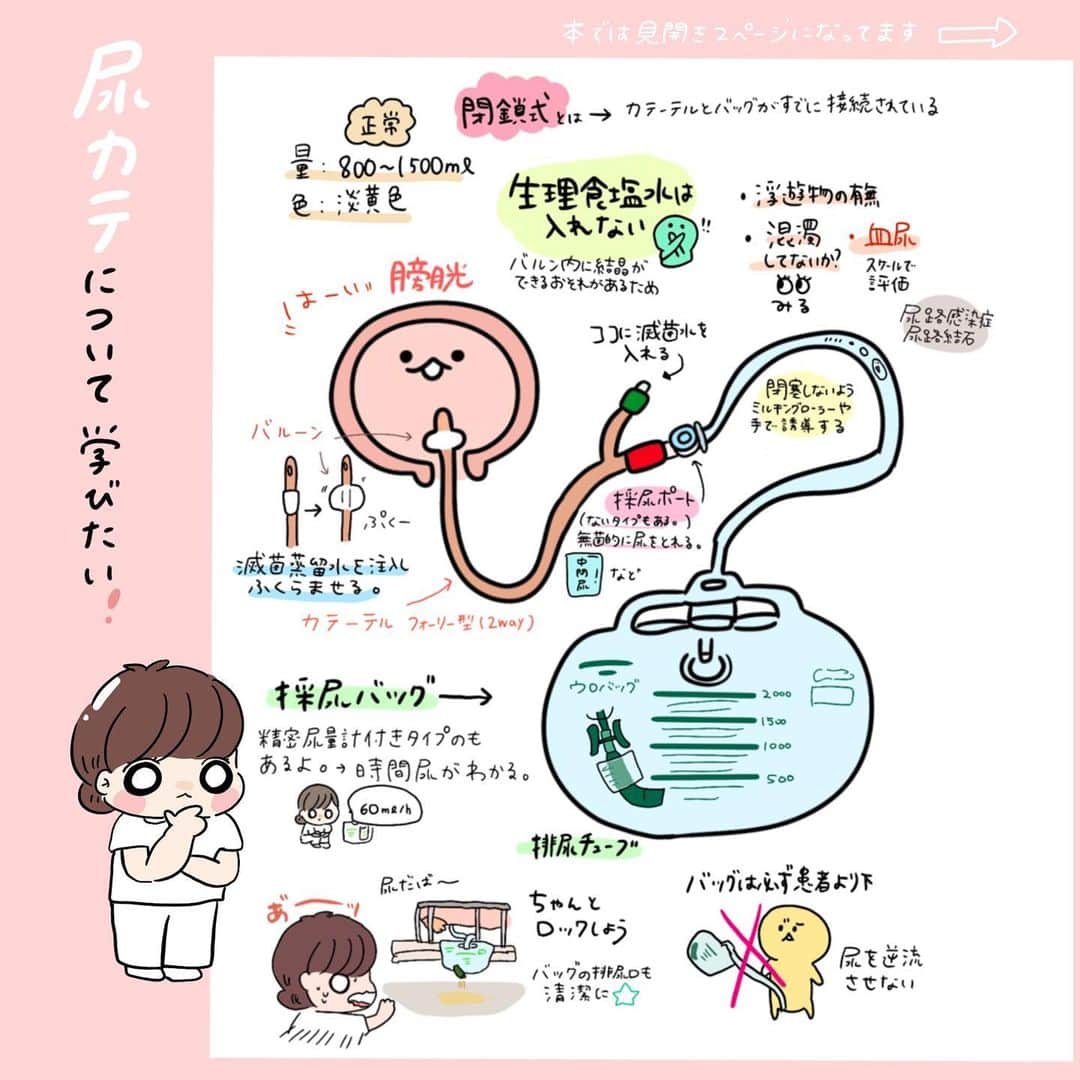 本では見開き2ページになってます
尿カテについて学びたい!
正常
量:800〜1500ml
色:淡黄色
閉鎖式とは→カテーテルとバッグがすでに接続されている
生理食塩水は
入れない!!
バルン内に結晶が
できるおそれがあるため
・浮遊物の有無
・混濁
してないか?
みる
・血尿
スケールで
評価
尿路感染症
尿路結石
はーいッ
膀胱
ココに滅菌水を
入れる
閉塞しないよう
ミルキングローラーや
手で誘導する
バルーン
ぷくー
滅菌蒸留水を注入し
ふくらませる。
カテーテル フォーリー型(2way)
採尿ポート
(ないタイプもある。)
無菌的に尿をとれる。
中間尿!
など
採尿バッグ→
精密尿量計付きタイプのも
あるよ。→時間尿がわかる。
60ml/h
ウロバッグ
2000
1500
1000
500
排尿チューブ
あ゛ーッ
尿だば〜
ちゃんと
ロックしよう
バッグの排尿口も
清潔に☆
バッグは必ず患者より下
尿を逆流
させない